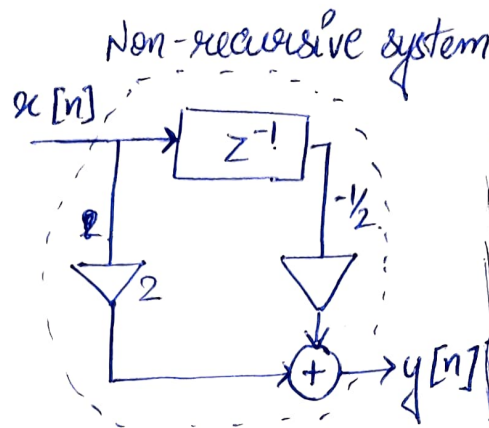 Non-recursive system
x[n]
z⁻¹
-1/2
2
+
y[n]